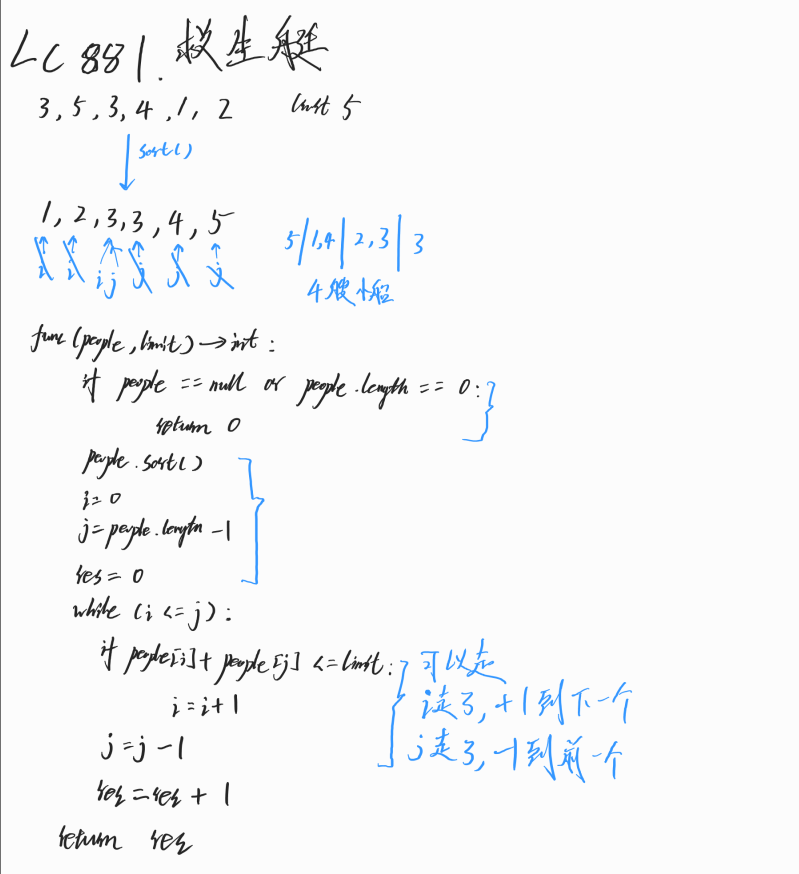 LC 881. 救生艇
3, 5, 3, 4, 1, 2 limit 5
sort()
1, 2, 3, 3, 4, 5
5 | 1,4 | 2,3 | 3
i i i j j j j
4艘小船
func(people, limit) → int:
if people == null or people.length == 0:
return 0
people.sort()
i=0
j=people.length -1
res = 0
while (i <= j):
if people[i] + people[j] <= limit:
可以走
i = i+1
i走了, +1到下一个
j = j - 1
j走了, -1到前一个
res = res + 1
return res